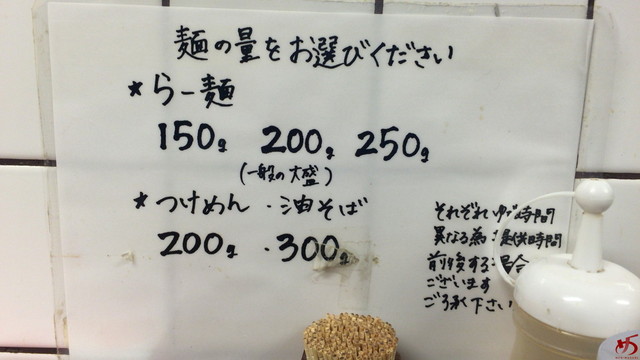 麺の量をお選びください
* らー麺
150g 200g 250g
(一般の大盛)
* つけめん ・油そば
200g ・300g
それぞれゆで時間
異なる為 提供時間
前後する場合
ございます
ご了承下さい
め